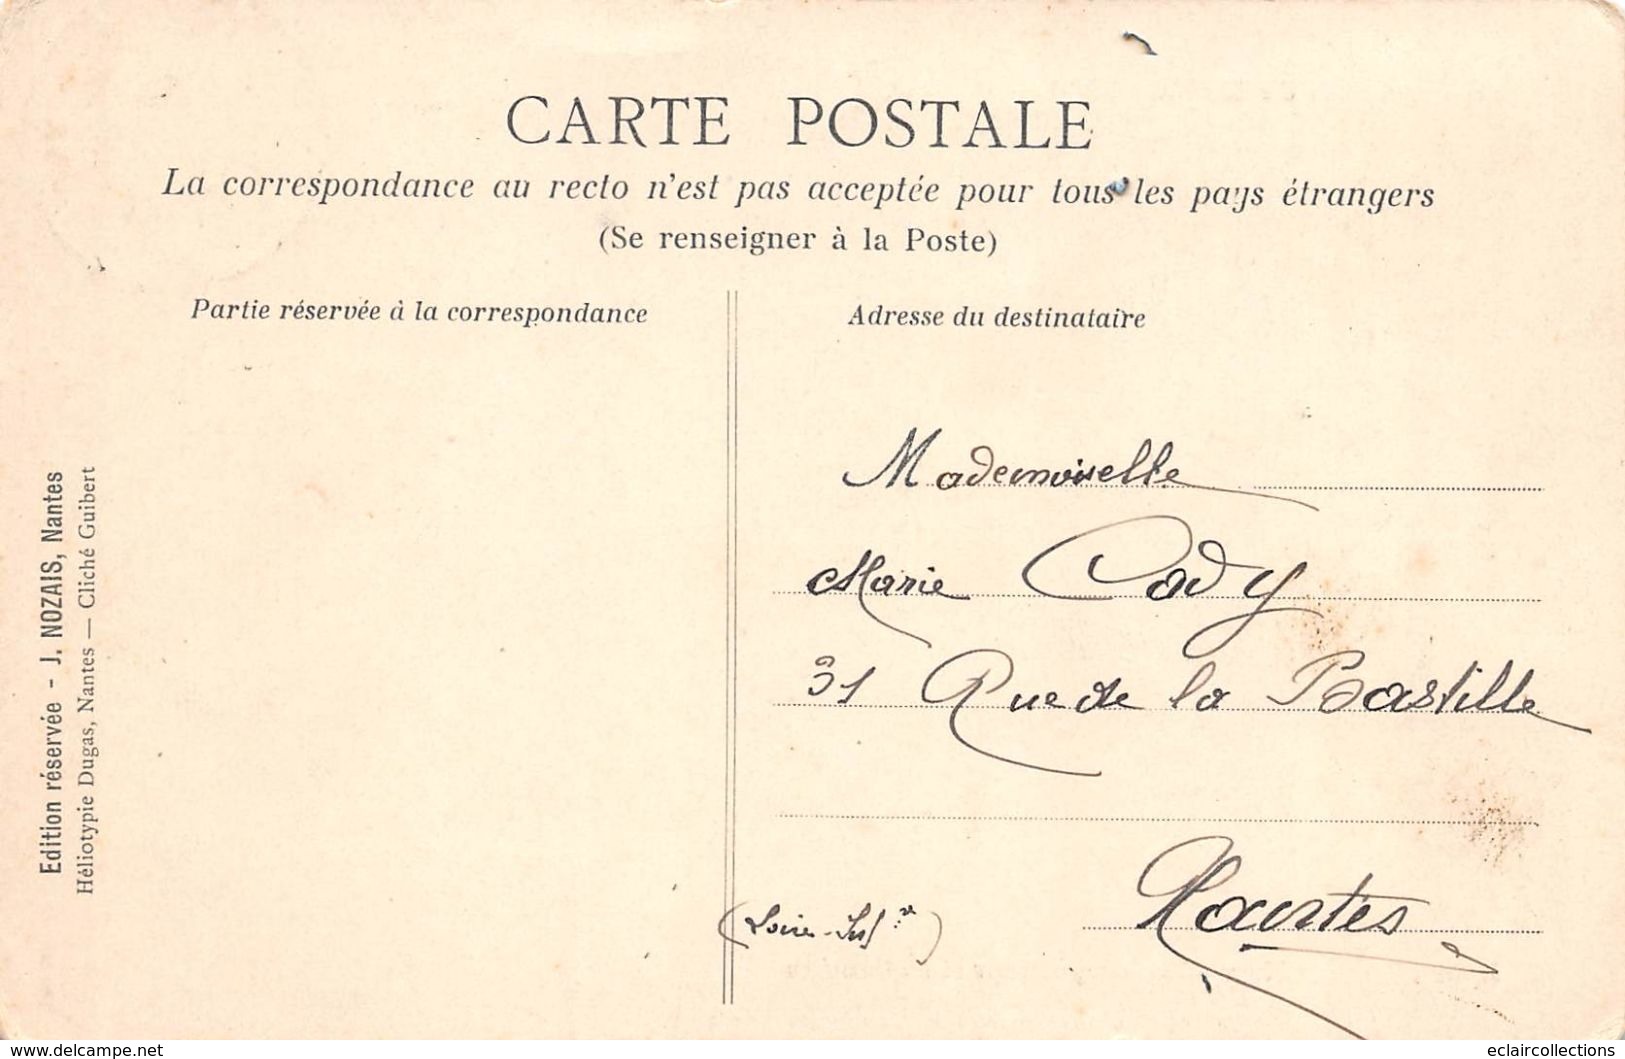 CARTE POSTALE
La correspondance au recto n'est pas acceptée pour tous les pays étrangers
(Se renseigner à la Poste)
Partie réservée à la correspondance
Adresse du destinataire
Mademoiselle
Marie Cady
31 Rue de la Bastille
Nantes
(Loire-Inf.re)
Edition réservée - J. NOZAIS, Nantes
Héliotypie Dugas, Nantes — Cliché Guibert
www.delcampe.net
eclaircollections